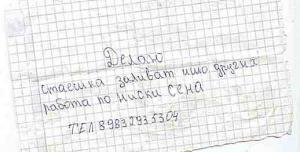 Делаю
стаешка заливат ишо других
работа по ниски сена
ТЕЛ 89832935304